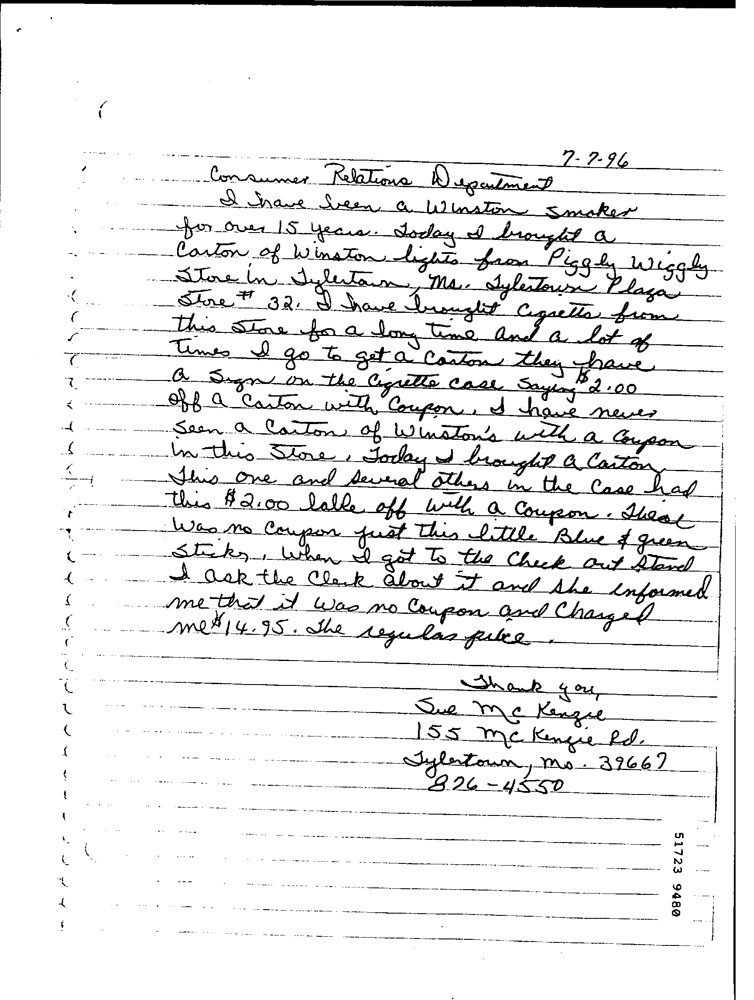 7-7-96
Consumer Relations Department
I have been a Winston smoker
for over 15 years. Today I brought a
Carton of Winston lights from Piggly Wiggly
Store in Tylertown, Ms. Tylertown Plaza
Store # 32. I have brought Cigretts from
this Store for a long time and a lot of
Times I go to get a Carton they have
a Sign on the Cigrette case Saying $2.00
off a Carton with Coupon. I have never
Seen a Carton of Winston's with a Coupon
in this Store. Today I brought a Carton
This one and several others in the Case had
this $2.00 lable off with a Coupon. These
Was no Coupon just this little Blue & green
Sticks. When I got To the Check out Stand
I ask the Clerk about it and she informed
me that it was no Coupon and Charged
me $14.95. The regular price.
Thank you,
Sue McKenzie
155 McKenzie Rd.
Tylertown, Ms. 39667
826-4550
51723 9480